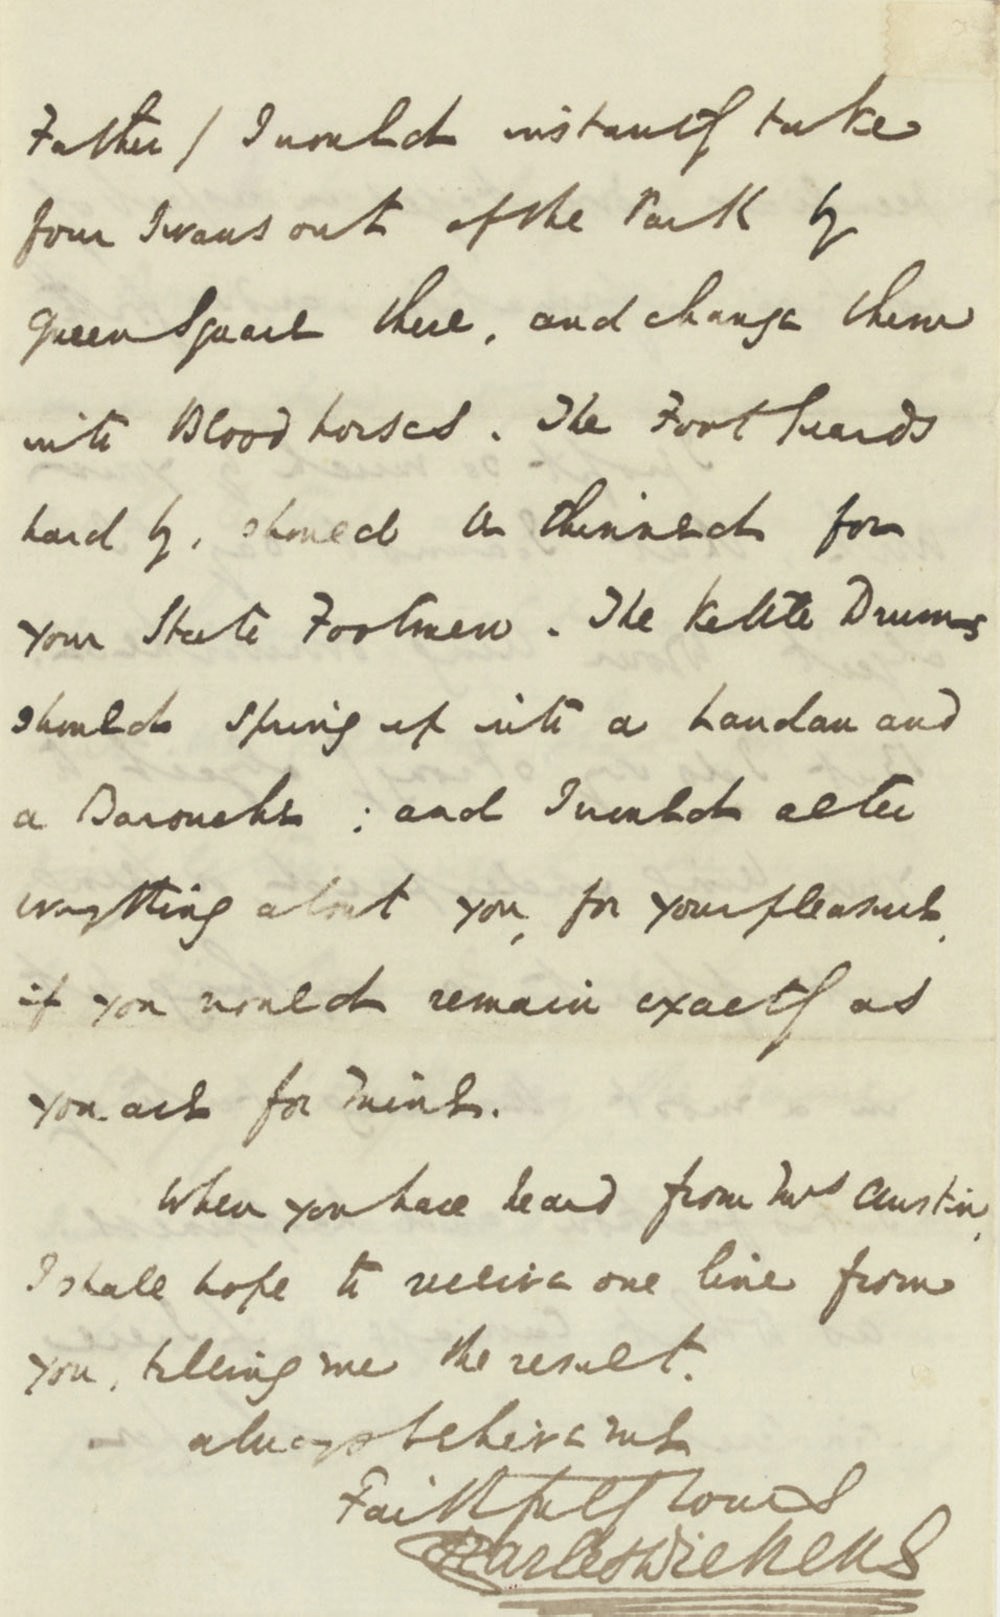 Father) I would instantly take
four Swans out of the Park by
Queen Square there, and change them
into Blood horses. The Foot Guards
hard by, should be thinned for
your State Footmen. The Kettle Drums
should spring up into a Landau and
a Barouche; and I would alter
everything about you, for your pleasure,
if you would remain exactly as
you are for mine.
When you have heard from Mrs Austin,
I shall hope to receive one line from
you, telling me the result.
always believe me
Faithfully Yours
Charles Dickens